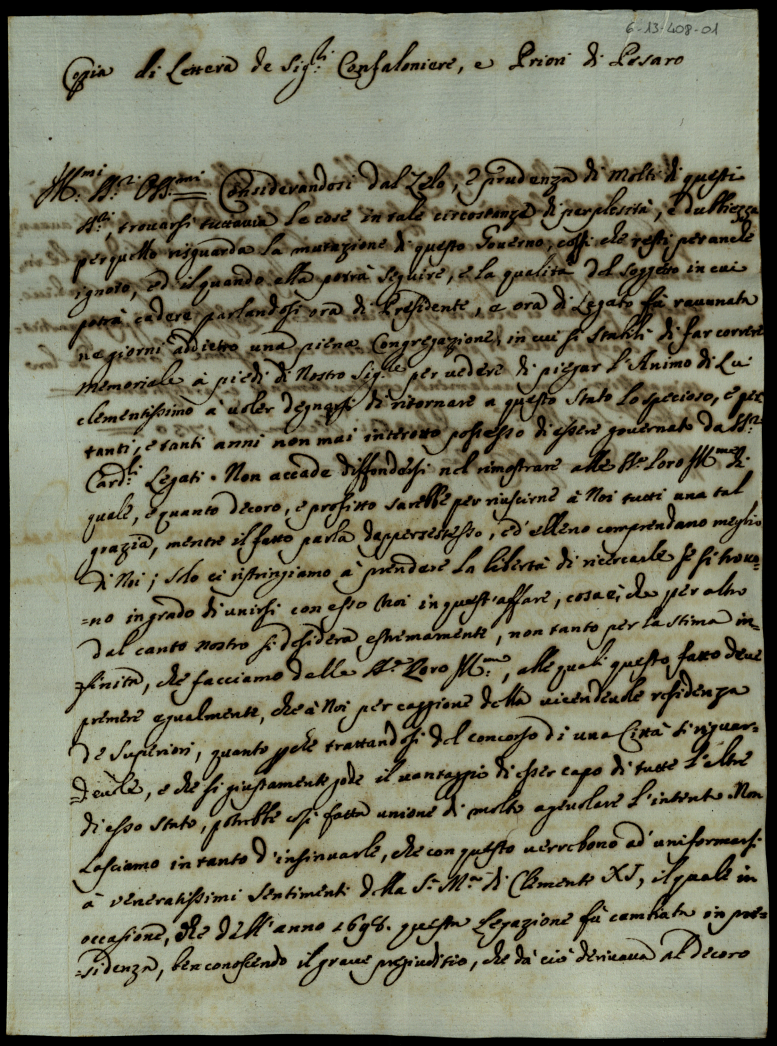 6-13-408-01
Copia di Lettera de Sig:ri Confaloniere, e Priori di Pesaro
Ill:mi SS:ri Oss:mi Considerandosi dal Zelo, e prudenza di molti di questi
SS:ri, trovarsi tuttavia le cose in tale circostanza di perplessità, e dubbiezza
per quello risguarda la mutazione di questo Governo, così che resti per anche
ignoto, ed il quando ella potrà seguire, e la qualità del soggetto in cui
potrà cadere parlandosi ora di Presidente, e ora di Legato fù raunata
ne giorni addietro una piena Congregazione, in cui si stabilì di far correre
memoriale à piedi di Nostro Sig:re per vedere di piegar l'Animo di Lui
clementissimo à voler degnarsi di ritornare a questo Stato lo specioso, e per
tanti, e tanti anni non mai interotto possesso di essere governato da SS:ri
Card:li Legati. Non accade diffondersi nel rimostrare alle SS:e Loro Ill:me di
quale, e quanto decoro, e profitto sarebbe per riuscirne à Noi tutti una tal
grazia, mentre il fatto parla dapersestesso, ed'elleno comprendano meglio
di Noi; solo ci ristringiamo à prendere la libertà di ricercarle se si trova=
=no in grado di unirsi con esso Noi in quest'affare, cosa è, che per altro
dal canto nostro si desidera estremamente, non tanto per la stima in=
=finita, che facciamo delle SS:e Loro Ill:me, alle quali questo fatto deve
premere egualmente, che à Noi per caggione della vicendevole residenza
de Superiori, quanto perche trattandosi del concorso di una Città sì riguar=
=devole, e che sì giustamente gode il vantaggio di esser capo di tutte l'altre
di esso Stato, potrebbe così fatta unione di molto agevolare l'intento. Non
Lasciamo in tanto d'insinuarle, che con questo verrebono ad'uniformarsi
à veneratissimi sentimenti della S:a M:a di Clemente XI, il quale in
occasione, che dell'anno 1698. questa Legazione fù cambiata in pre=
=sidenza, ben conoscendo il grave pregiuditio, che da ciò derivava al decoro